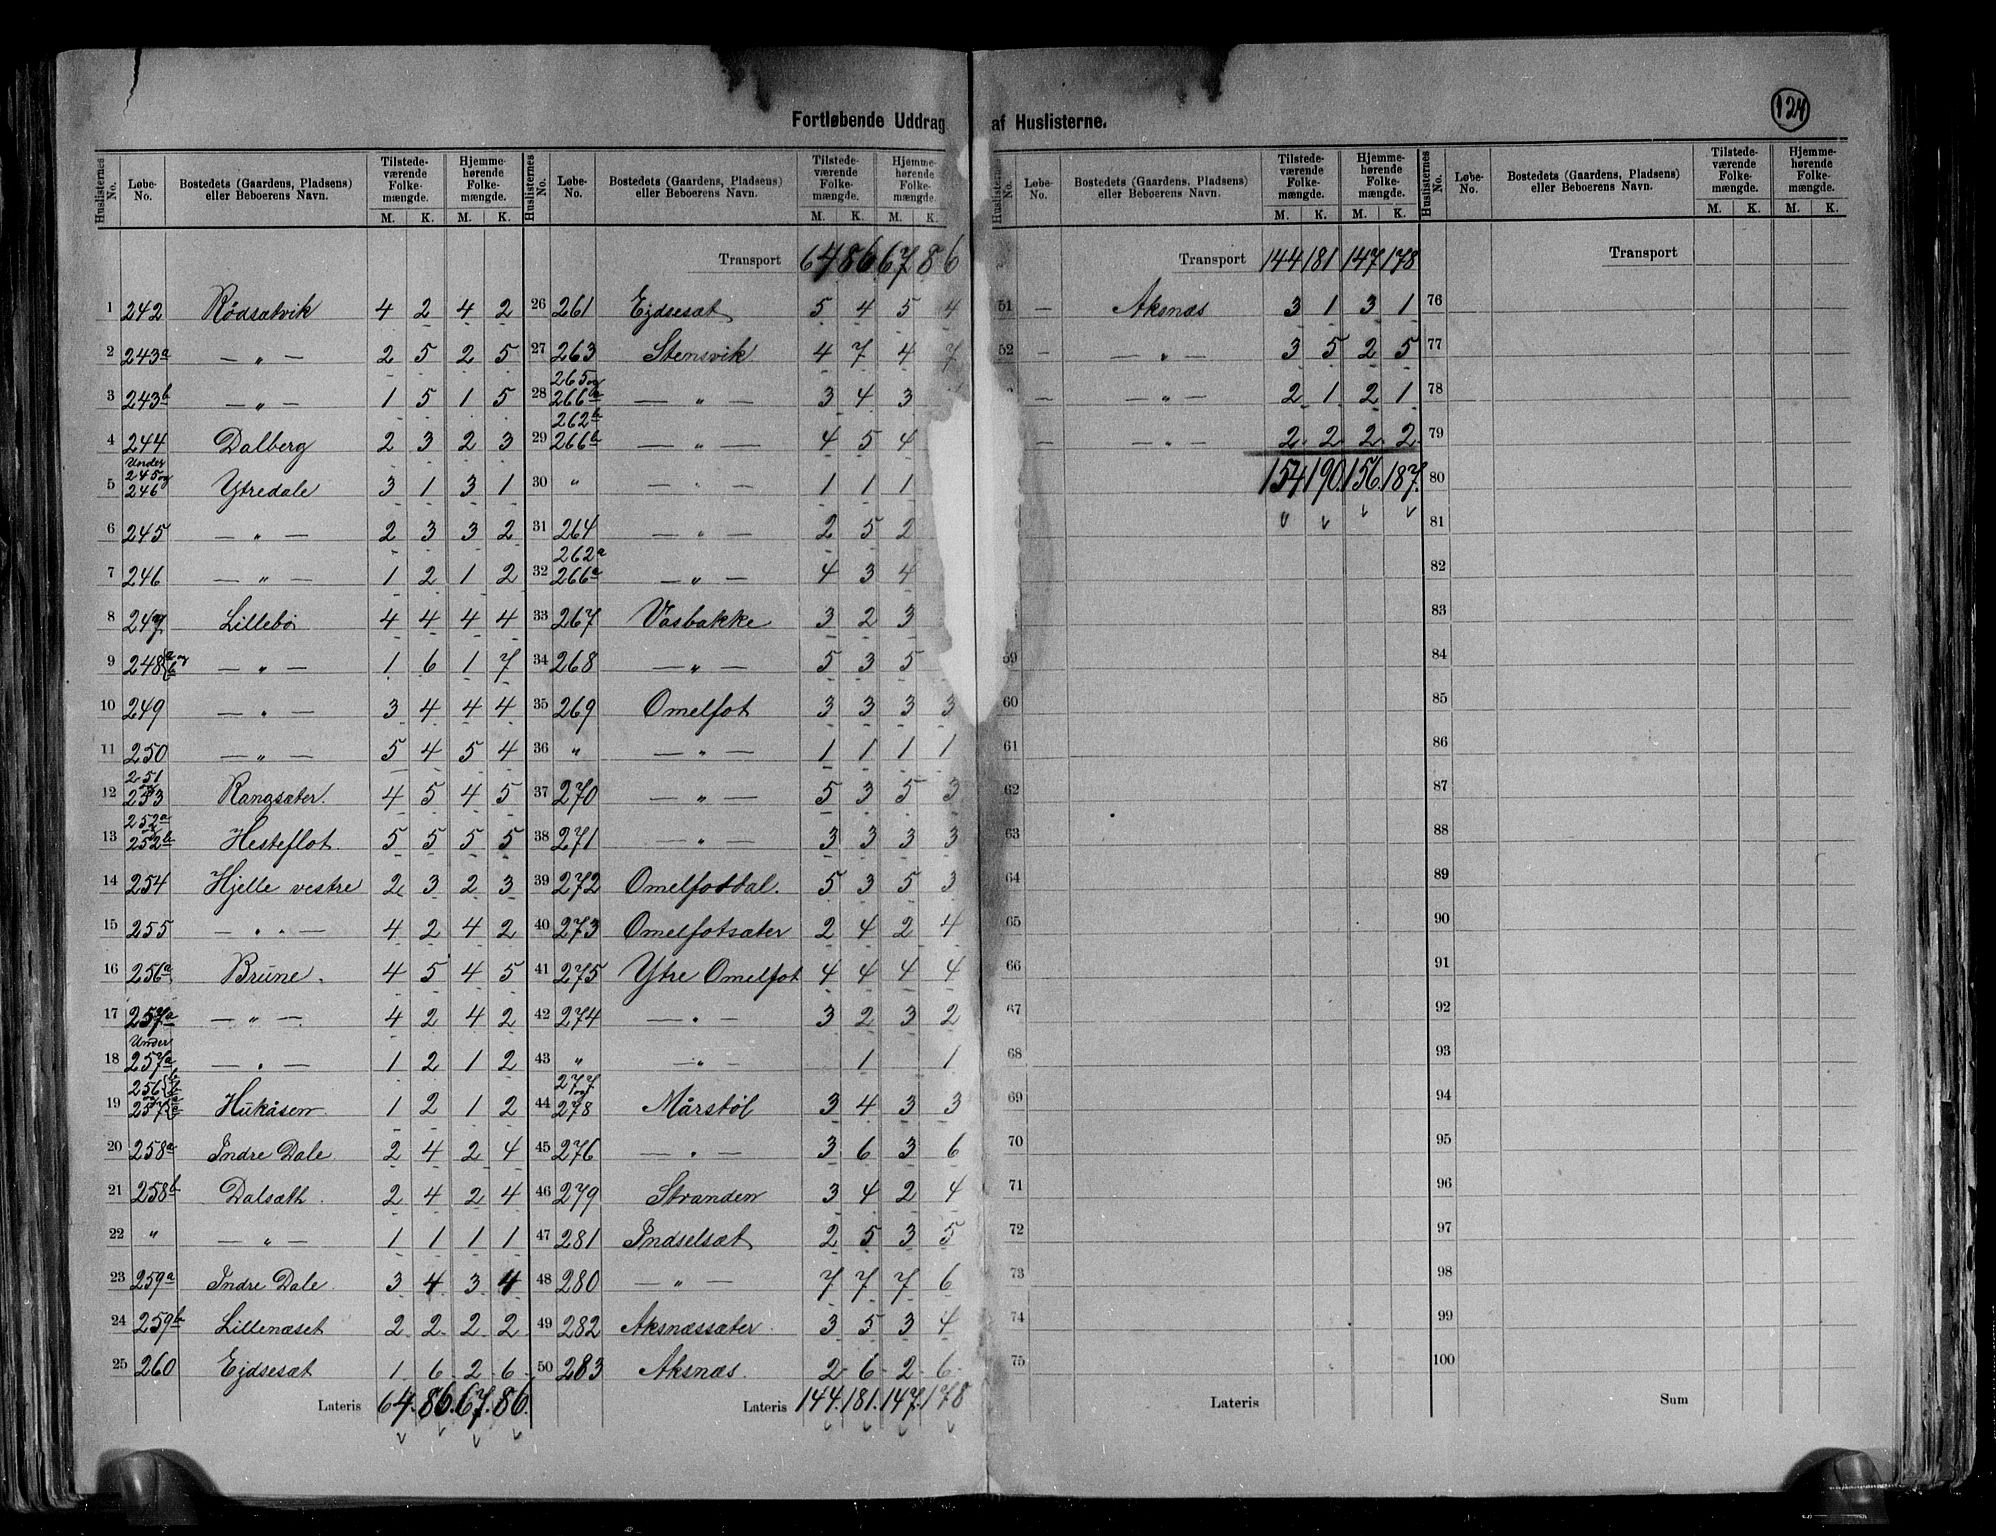 124
Fortløbende Uddrag af Huslisterne.
Huslisternes No. Løbe-No. Bostedets (Gaardens, Pladsens) eller Beboerens Navn. Tilstedeværende Folkemængde. M. K. Hjemmehørende Folkemængde. M. K.
1 242 Rødsætvik 4 2 4 2
2 243a — " — 2 5 2 5
3 243b — " — 1 5 1 5
4 244 Dalberg 2 3 2 3
5 Under 245 og 246 Ytredale 3 1 3 1
6 245 — " — 2 3 3 2
7 246 — " — 1 2 1 2
8 247 Lillebø 4 4 4 4
9 248 a og b — " — 1 6 1 7
10 249 — " — 3 4 4 4
11 250 — " — 5 4 5 4
12 251 og 253 Rangsæter. 4 5 4 5
13 252a og 252b Hesteflot. 5 5 5 5
14 254 Hjelle vestre 2 3 2 3
15 255 — " " — 4 2 4 2
16 256a Brune. 4 5 4 5
17 257a — " — 4 2 4 2
18 Under 257a — " — 1 2 1 2
19 256 257 Hukåsen 1 2 1 2
20 258a Indre Dale 2 4 2 4
21 258b Dalsæth. 2 4 2 4
22 " — " — 1 1 1 1
23 259a Indre Dale 3 4 3 4
24 259b Lillenæset 2 2 2 2
25 260 Ejdsesæt 1 6 2 6
Lateris 64. 86. 67. 86.
Huslisternes No. Løbe-No. Bostedets (Gaardens, Pladsens) eller Beboerens Navn. Tilstedeværende Folkemængde. M. K. Hjemmehørende Folkemængde. M. K.
Transport 64 86 67 86
26 261 Ejdsesæt 5 4 5 4
27 263 Stensvik 4 7 4 7
28 265 og 266a — " — 3 4 3
29 262b 266b — " — 4 5 4
30 " — " — 1 1 1
31 264 — " — 2 5 2
32 262a 266a — " — 4 3 4
33 267 Vasbakke 3 2 3
34 268 — " — 5 3 5
35 269 Omelfot 3 3 3 3
36 " — " — 1 1 1 1
37 270 — " — 5 3 5 3
38 271 — " — 3 3 3 3
39 272 Omelfotdal. 5 3 5 3
40 273 Omelfotsæter 2 4 2 4
41 275 Ytre Omelfot 4 4 4 4
42 274 — " — 3 2 3 2
43 " — " — 1 1
44 277 og 278 Mårstøl 3 4 3 3
45 276 — " — 3 6 3 6
46 279 Stranden 3 4 2 4
47 281 Indselsæt 2 5 3 5
48 280 — " — 7 7 7 6
49 282 Aksnæssæter. 3 5 3 4
50 283 Aksnæs. 2 6 2 6
Lateris 144. 181. 147. 178
Huslisternes No. Løbe-No. Bostedets (Gaardens, Pladsens) eller Beboerens Navn. Tilstedeværende Folkemængde. M. K. Hjemmehørende Folkemængde. M. K.
Transport 144 181 147 178
51 — Aksnæs 3 1 3 1
52 — — " — 3 5 2 5
— — " — 2 1 2 1
— — " — 2 2 2 2
154 190 156 187
59
60
61
62
63
64
65
66
67
68
69
70
71
72
73
74
75
Lateris
Huslisternes No. Løbe-No. Bostedets (Gaardens, Pladsens) eller Beboerens Navn. Tilstedeværende Folkemængde. M. K. Hjemmehørende Folkemængde. M. K.
Transport
76
77
78
79
80
81
82
83
84
85
86
87
88
89
90
91
92
93
94
95
96
97
98
99
100
Sum